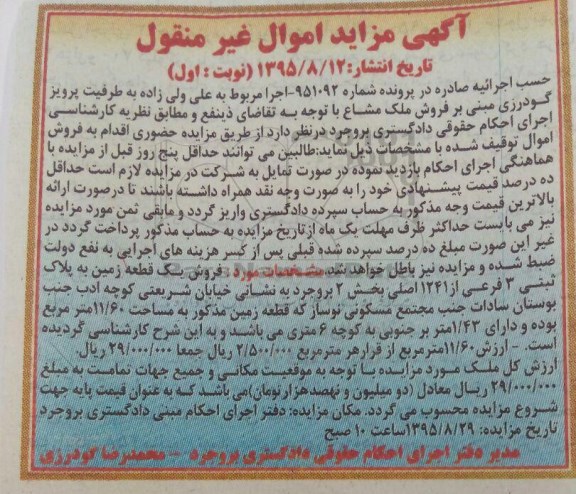 آگهی مزاید اموال غیر منقول
تاریخ انتشار:۱۳۹۵/۸/۱۲ (نوبت : اول)
حسب اجرائیه صادره در پرونده شماره ۹۵۱۰۹۲-اجرا مربوط به علی ولی زاده به طرفیت پرویز
گودرزی مبنی بر فروش ملک مشاع با توجه به تقاضای ذینفع و مطابق نظریه کارشناسی
اجرای احکام حقوقی دادگستری بروجرد درنظر دارد از طریق مزایده حضوری اقدام به فروش
اموال توقیف شده با مشخصات ذیل نماید:طالبین می توانند حداقل پنج روز قبل از مزایده با
هماهنگی اجرای احکام بازدید نموده در صورت تمایل به شرکت در مزایده لازم است حداقل
ده درصد قیمت پیشنهادی خود را به صورت وجه نقد همراه داشته باشند تا درصورت ارائه
بالاترین قیمت وجه مذکور به حساب سپرده دادگستری واریز گردد و مابقی ثمن مورد مزایده
نیز می بایست حداکثر ظرف مهلت یک ماه ازتاریخ مزایده به حساب مذکور پرداخت گردد در
غیر این صورت مبلغ ده درصد سپرده شده قبلی پس از کسر هزینه های اجرایی به نفع دولت
ضبط شده و مزایده نیز باطل خواهد شد. مشخصات مورد : فروش یک قطعه زمین به پلاک
ثبتی ۳ فرعی از۱۲۴۱ اصلی بخش ۲ بروجرد به نشانی خیابان شریعتی کوچه ادب جنب
بوستان سادات جنب مجتمع مسکونی نوساز که قطعه زمین مذکور به مساحت ۱۱/۶۰متر مربع
بوده و دارای ۱/۴۳متر بر جنوبی به کوچه ۶ متری می باشد و به این شرح کارشناسی گردیده
است. - ارزش ۱۱/۶۰مترمربع از قرارهر مترمربع ۲/۵۰۰/۰۰۰ ریال جمعا ۲۹/۰۰۰/۰۰۰ ریال.
ارزش کل ملک مورد مزایده با توجه به موقعیت مکانی و جمیع جهات تمامت به مبلغ
۲۹/۰۰۰/۰۰۰ ریال معادل (دو میلیون و نهصدهزارتومان)می باشد که به عنوان قیمت پایه جهت
شروع مزایده محسوب می گردد. مکان مزایده: دفتر اجرای احکام مبنی دادگستری بروجرد
تاریخ مزایده: ۱۳۹۵/۸/۲۹ساعت ۱۰ صبح
مدیر دفتر اجرای احکام حقوقی دادگستری بروجرد - محمدرضا گودرزی